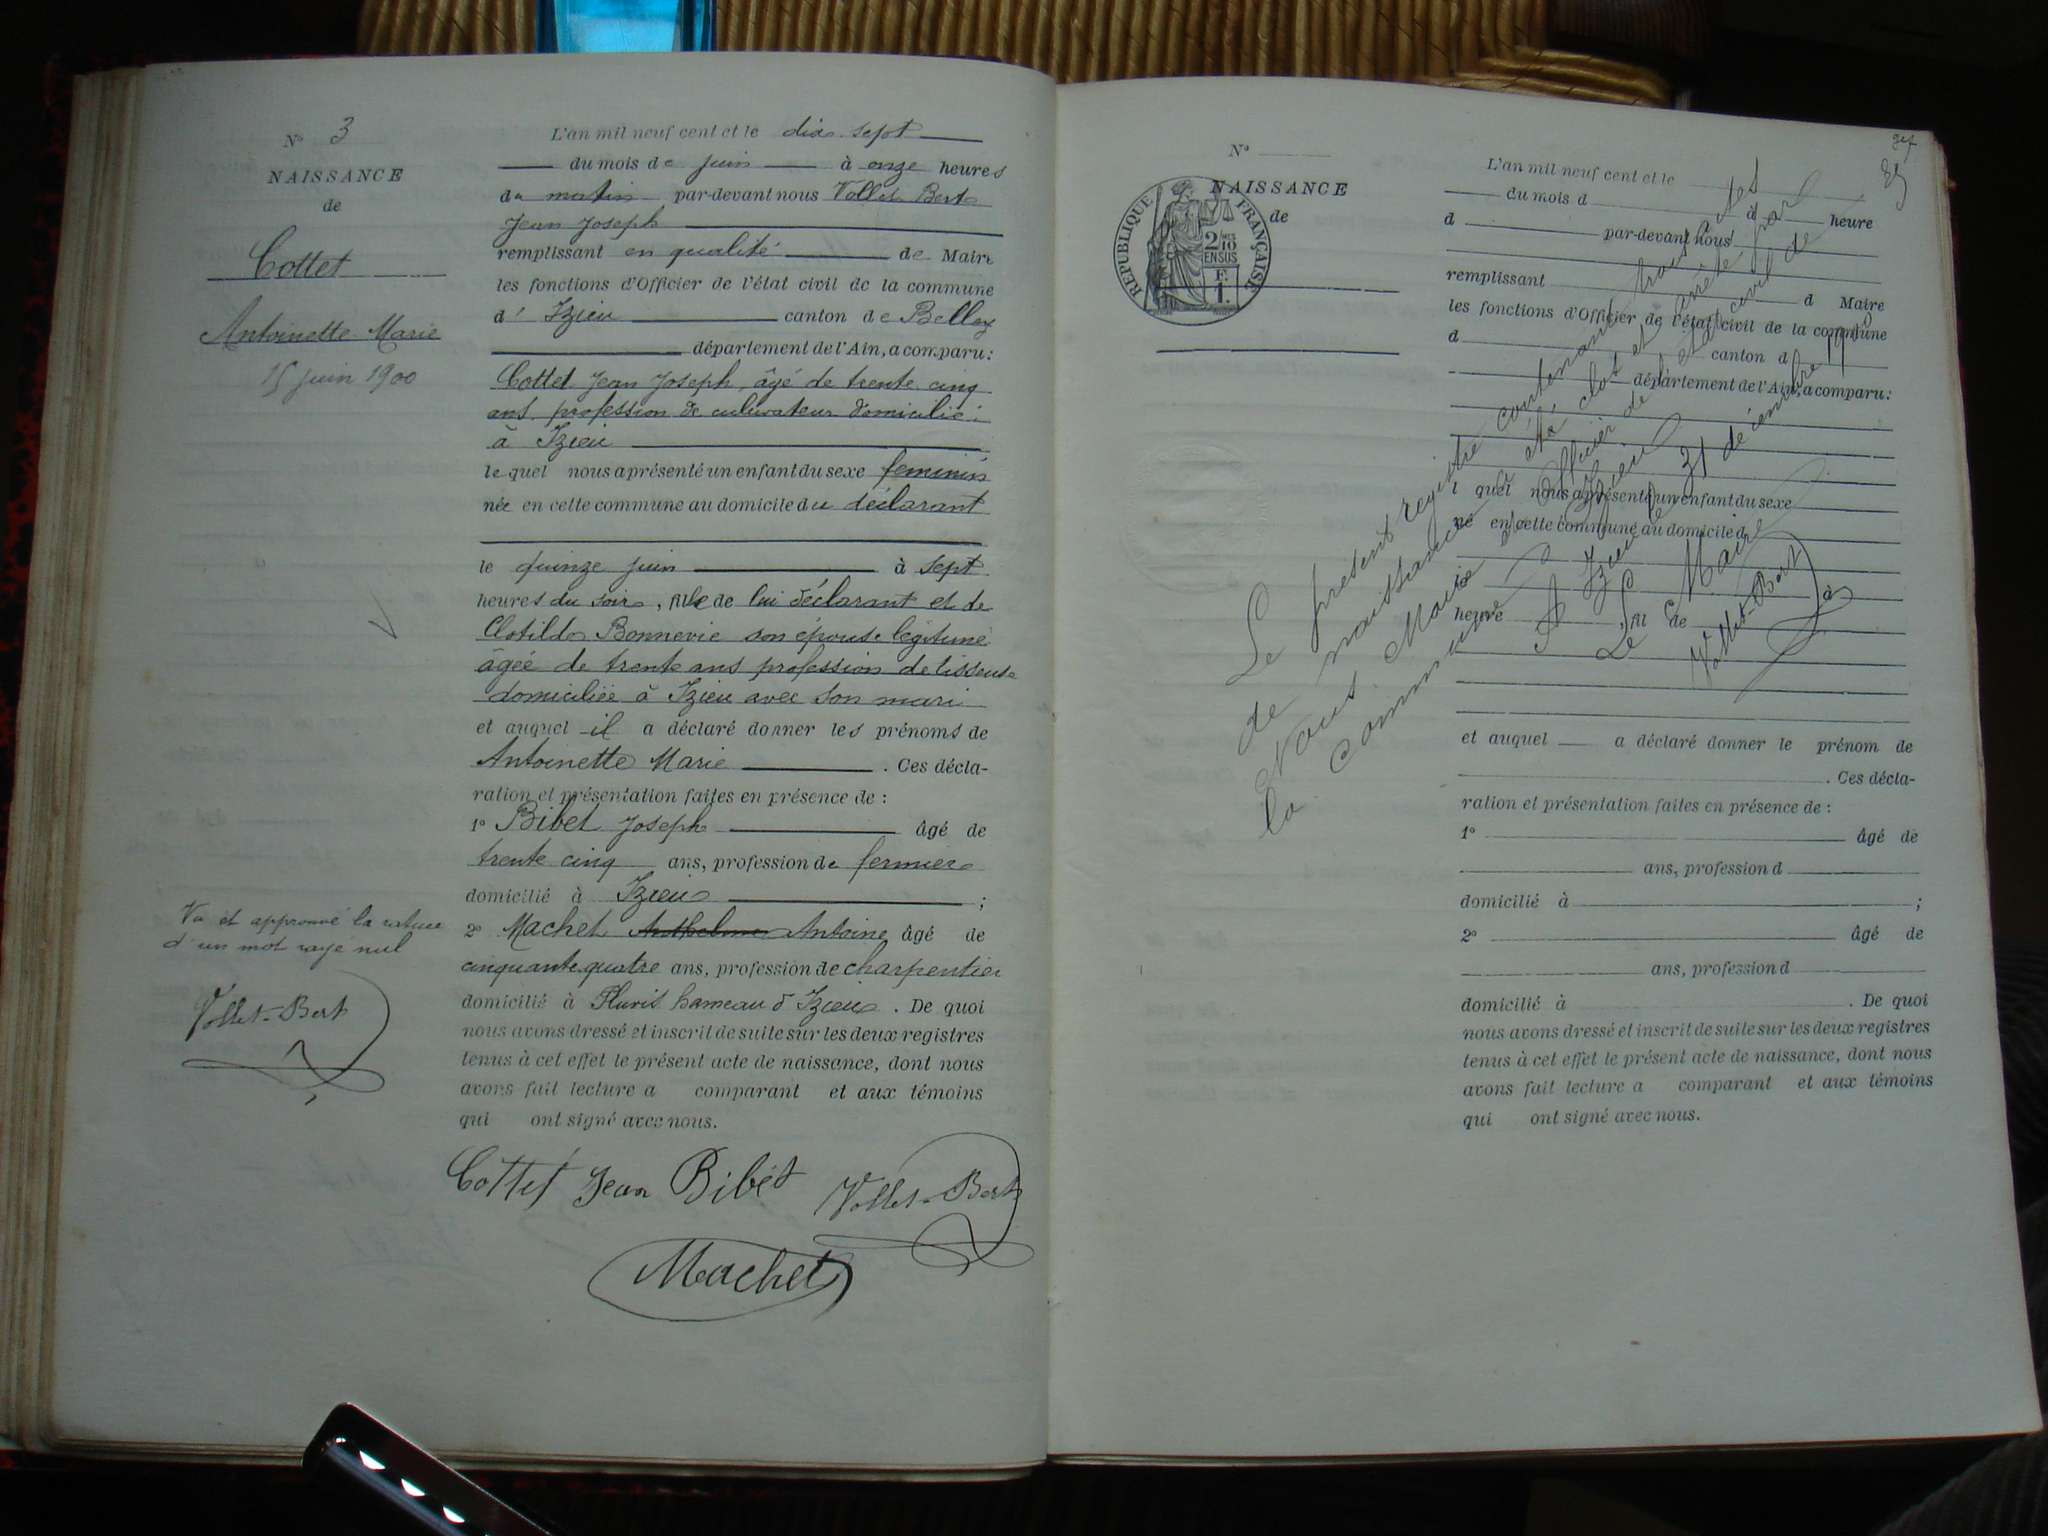 N° 3
NAISSANCE
de
Cottet
Antoinette Marie
15 juin 1900
L'an mil neuf cent et le dix sept
du mois de juin à onze heures
du matin par-devant nous Vollet Bert
Jean Joseph
remplissant en qualité de Maire
les fonctions d'Officier de l'état civil de la commune
d' Izieu canton de Belley
département de l'Ain, a comparu:
Cottet Jean Joseph, âgé de trente cinq
ans, profession de cultivateur domicilié
à Izieu
le quel nous a présenté un enfant du sexe feminin
née en cette commune au domicile du déclarant
le quinze juin à sept
heures du soir, fille de lui déclarant et de
Clotilde Bonnevie son épouse légitime
âgée de trente ans profession de tisseuse
domiciliée à Izieu avec son mari
et auquel il a déclaré donner les prénoms de
Antoinette Marie. Ces décla-
ration et présentation faites en présence de :
1° Bibet Joseph âgé de
trente cinq ans, profession de fermier
domicilié à Izieu ;
2° Machet Anthelme Antoine âgé de
cinquante quatre ans, profession de charpentier
domicilié à Pluris hameau d'Izieu. De quoi
nous avons dressé et inscrit de suite sur les deux registres
tenus à cet effet le présent acte de naissance, dont nous
avons fait lecture a comparant et aux témoins
qui ont signé avec nous.
Vu et approuvé la rature
d'un mot rayé nul
Vollet-Bert
Cottet Jean Bibet Vollet-Bert
Machet
85
N°
NAISSANCE
de
RÉPUBLIQUE FRANÇAISE
2/10
EN SUS
F.
1.
L'an mil neuf cent et le
du mois d à heure
d par-devant nous
remplissant d Maire
les fonctions d'Officier de l'état civil de la commune
d canton d
département de l'Ain, a comparu:
l quel nous a présenté un enfant du sexe
né en cette commune au domicile d
le à
heure , fil de
et auquel a déclaré donner le prénom de
. Ces décla-
ration et présentation faites en présence de :
1° âgé de
ans, profession d
domicilié à ;
2° âgé de
ans, profession d
domicilié à . De quoi
nous avons dressé et inscrit de suite sur les deux registres
tenus à cet effet le présent acte de naissance, dont nous
avons fait lecture a comparant et aux témoins
qui ont signé avec nous.
Le présent registre contenant trois actes
de naissance a été clos et arrêté par
Nous Maire et Officier de l'état civil de
la commune d'Izieu
A Izieu le 31 décembre 1900
Le Maire
Vollet-Bert